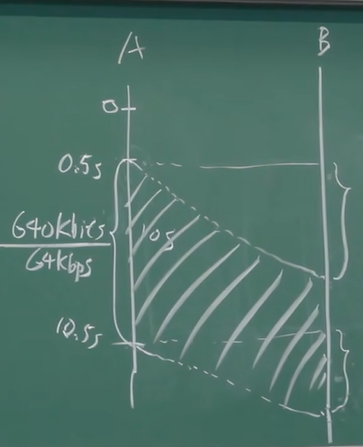 A B
0
0.5s
640kbits
64kbps
10s
10.5s